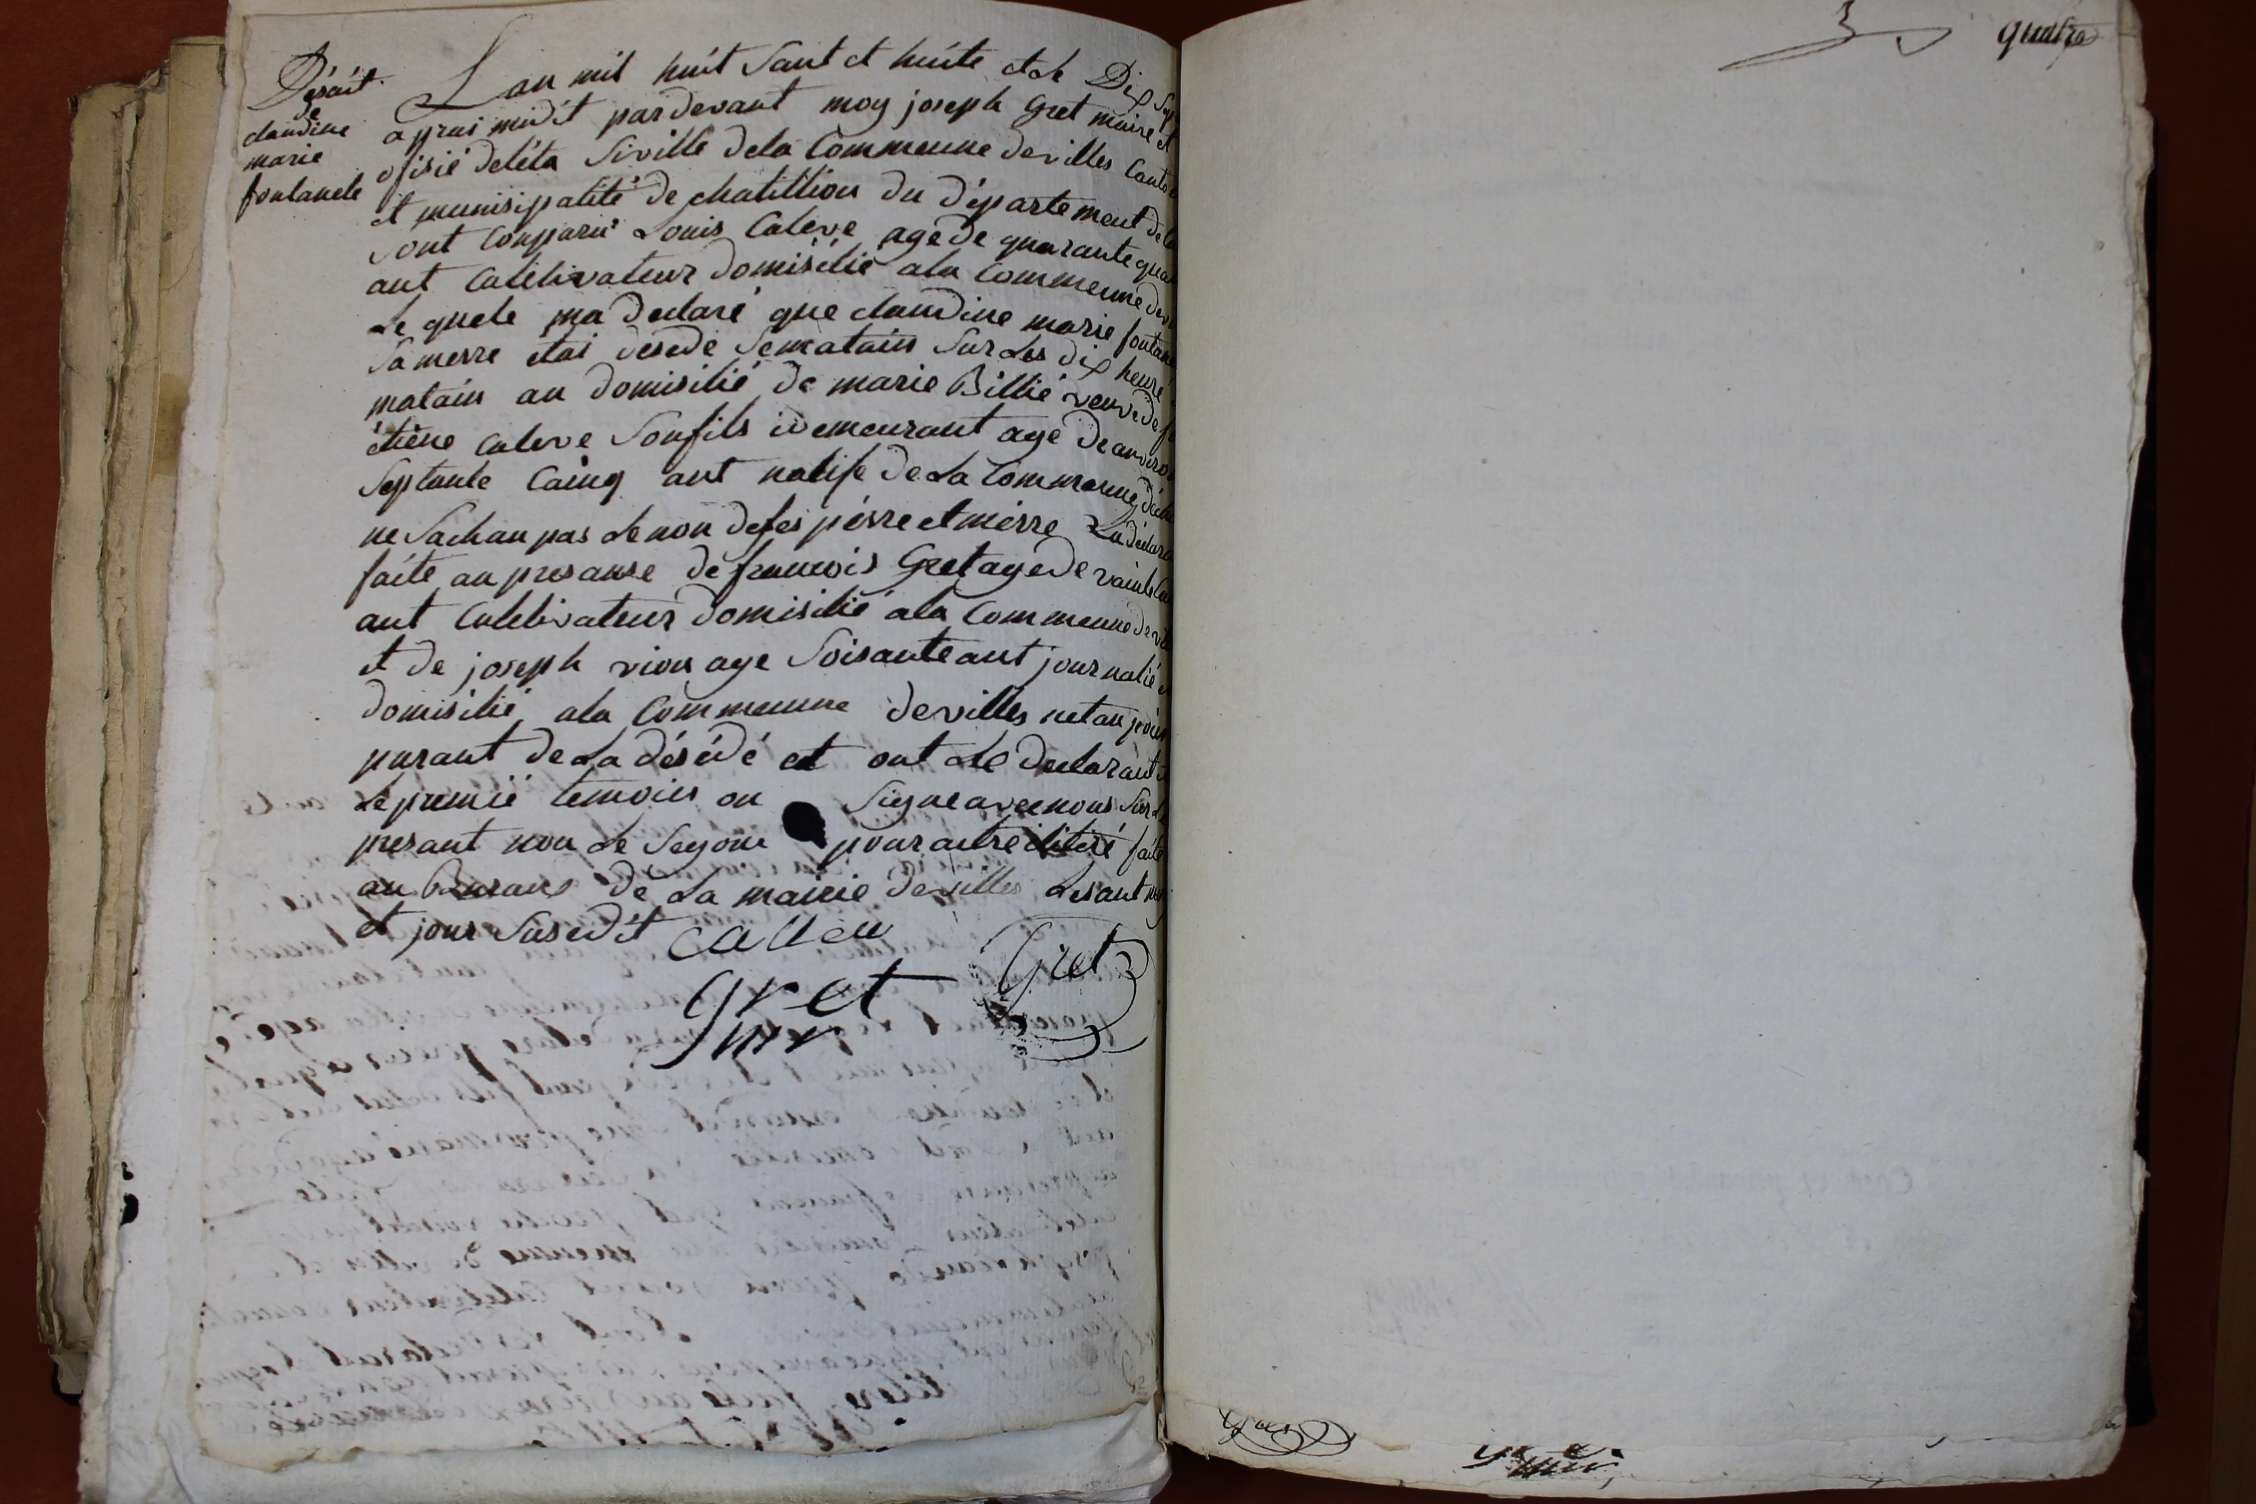 Désait
de
claudine
marie
fontanele
Lan mil huit Sant et huite et le Dix Sep
aprai midit par devant moy joseph Gret maire et
ofisié deléta Siville dela Commeune devilles Canton
et munisipalité de chatillion du département dela
Sont Conparü Louis Caleve age de quarante qua
ant Culetivateur domisilié ala Commeune de
Le quele ma declaré que claudine marie fontane
Sa merre étai désedé Sematain Sur Les dix heure
matain au domisilié de marie Billié veuve de f
étiène caleve Son fils idemeurant age de anviron
Septante Cainq ant natife de La Commeune
ne Sachan pas Le non de ses pérre et mérre La déclara
faite au presanse de francois Gret age de vainte
ant Culetivateur domisilié ala Commeune de
et de joseph vion age Soisante ant journalié
domisilié ala Commeune devilles netan poin
parant de La désédé et ont Le declarant
Le premié temoin on Signe avec nous Sur Le
presant non Le Segon pour autre ilitéré faite
au Buraux de La mairie devilles Les ant
et jour Susedit
Calleu
Gret
gret
mr
3
quatre
Gret